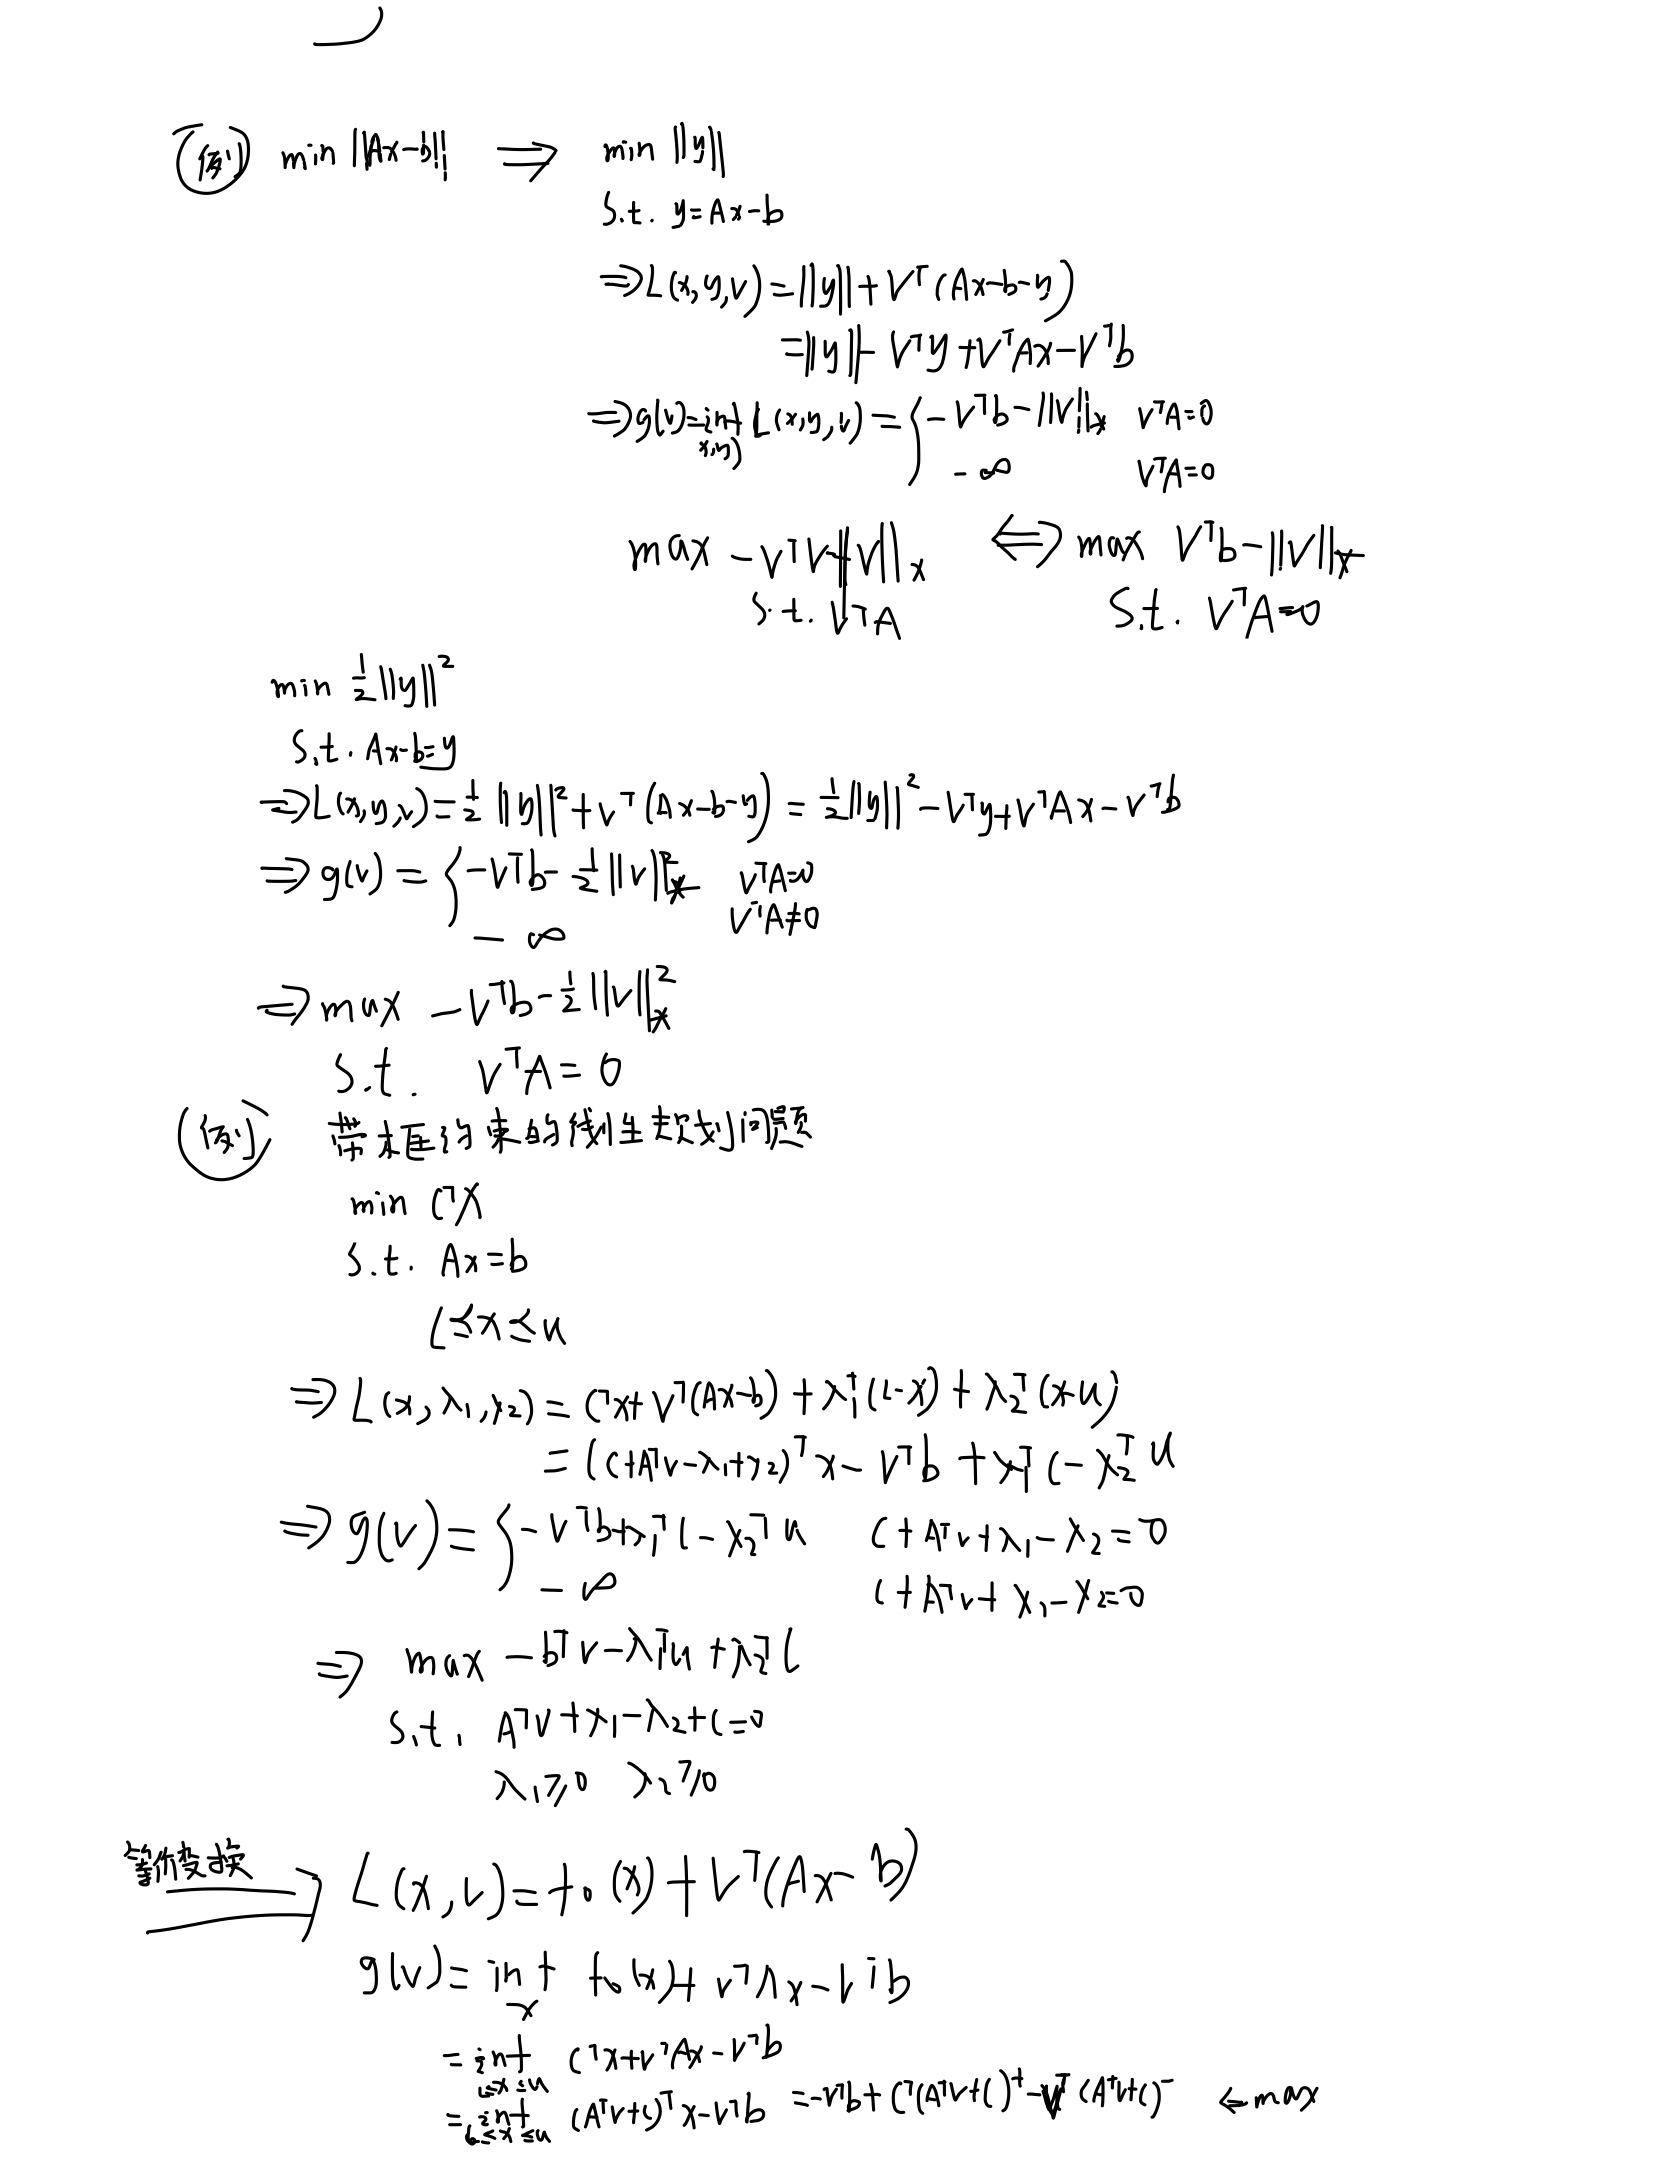 (例) min ||Ax-b|| ⇒ min ||y||
S.t. y=Ax-b
⇒L(x,y,v)=||y||+Vᵀ(Ax-b-y)
=||y||-Vᵀy+VᵀAx-Vᵀb
⇒g(v)=inf x,y L(x,y,v)={-Vᵀb-||V||* VᵀA=0
-∞ VᵀA=0
max -VᵀV-||V||* ⇔ max Vᵀb-||V||*
S.t. VᵀA S.t. VᵀA=0
min ½||y||²
S.t. Ax-b=y
⇒L(x,y,v)=½||y||²+vᵀ(Ax-b-y)=½||y||²-Vᵀy+VᵀAx-vᵀb
⇒g(v)={-Vᵀb-½||v||²* VᵀA=0
-∞ VᵀA≠0
⇒max -Vᵀb-½||v||²*
S.t. VᵀA=0
(例) 带框约束的线性规划问题
min CᵀX
S.t. Ax=b
l≤x≤u
⇒L(x,λ₁,λ₂)=Cᵀx+Vᵀ(Ax-b)+λ₁ᵀ(l-x)+λ₂ᵀ(x-u)
=(C+Aᵀv-λ₁+λ₂)ᵀx-Vᵀb+λ₁ᵀl-λ₂ᵀu
⇒g(v)={-Vᵀb+λ₁ᵀl-λ₂ᵀu C+Aᵀv+λ₁-λ₂=0
-∞ C+Aᵀv+λ₁-λ₂=0
⇒ max -bᵀv-λ₁ᵀu+λ₂ᵀl
S.t. Aᵀv+λ₁-λ₂+C=0
λ₁≥0 λ₂≥0
等价变换⇒ L(x,v)=f₀(x)+Vᵀ(Ax-b)
g(v)=inf x f₀(x)+vᵀAx-vᵀb
=inf l≤x≤u Cᵀx+vᵀAx-Vᵀb
=inf l≤x≤u (Aᵀv+C)ᵀx-Vᵀb =-vᵀb+lᵀ(Aᵀv+C)⁺-uᵀ(Aᵀv+C)⁻ ←max